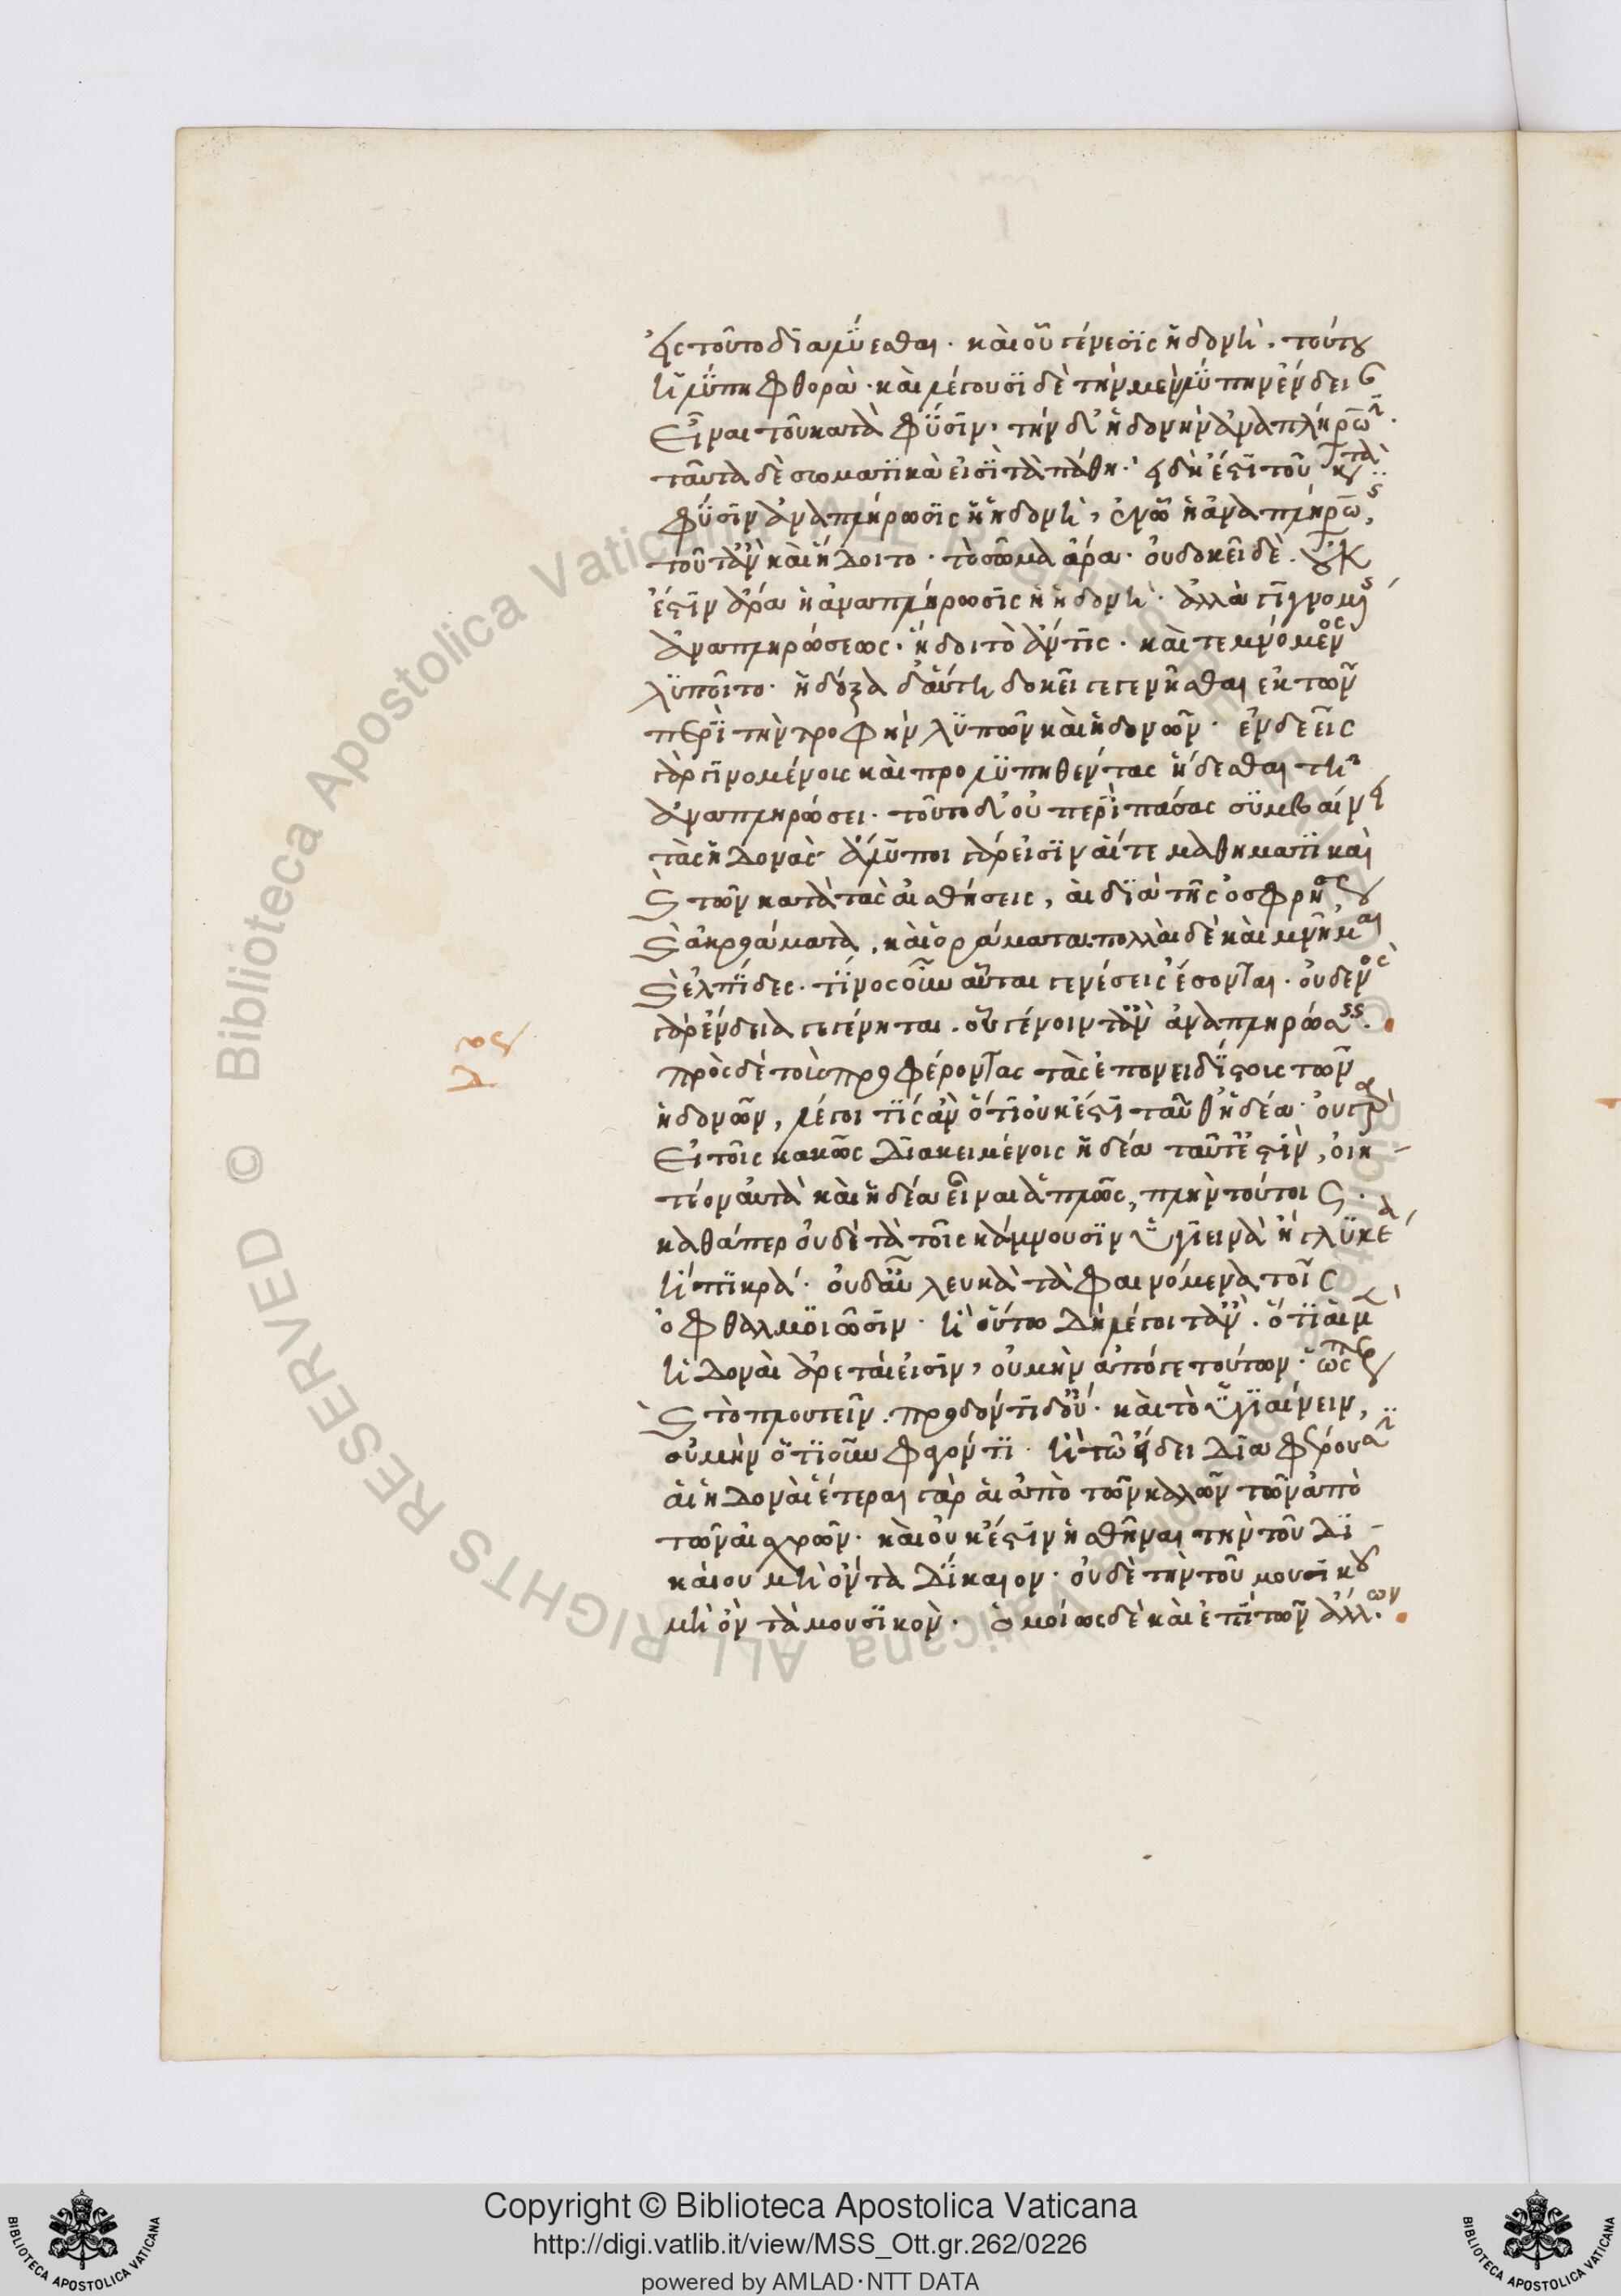 εἰς τοῦτο διαλύεσθαι. καὶ οὗ γένεσις ἡδονὴ, τούτου
ἡ λύπη φθορά. καὶ λέγουσι δὲ τὴν μὲν λύπην ἔνδει
εἶναι τοῦ κατὰ φύσιν, τὴν δ' ἡδονὴν ἀναπλήρω
ταῦτα δὲ σωματικὰ εἰσὶ τὰ πάθη. εἰ δὴ ἐστὶ τοῦ κτὰ
φύσιν ἀναπλήρωσις ἡ ἡδονὴ, ἐν ᾧ ἡ ἀναπλήρως,
τοῦτ' ἂν καὶ ἥδοιτο. τὸ σῶμα ἄρα. οὐ δοκεῖ δὲ. οὐκ
ἔστιν ἄρα ἡ ἀναπλήρωσις ἡ ἡδονὴ. ἀλλὰ γιγνομς
ἀναπληρώσεως. ἥδοιτο ἄν τις. καὶ τεμνόμενος
λυποῖτο. ἡ δόξα δ' αὕτη δοκεῖ γεγενῆσθαι ἐκ τῶν
περὶ τὴν τροφὴν λυπῶν καὶ ἡδονῶν. ἐνδεεῖς
γὰρ γινομένοις καὶ προλυπηθέντας ἥδεσθαι τῆ
ἀναπληρώσει. τοῦτο δ' οὐ περὶ πάσας συμβαίνει
τὰς ἡδονάς. ἄλυποι γάρ εἰσιν αἵ τε μαθηματικαὶ
καὶ τῶν κατὰ τὰς αἰσθήσεις, αἱ διὰ τῆς ὀσφρήσεως
καὶ ἀκροάματα, καὶ ὁράματα. πολλαὶ δὲ καὶ μνῆμαι
καὶ ἐλπίδες. τίνος οὖν αὗται γενέσεις ἔσονται. οὐδενὸς
γὰρ ἔνδεια γεγένηται. οὗ γένοιτ' ἂν ἀναπλήρωσις.
πρὸς δὲ τοὺς προφέροντας τὰς ἐπονειδίστους τῶν
ἡδονῶν, λέγοι τίς ἂν ὅτι οὐκ ἔστι ταῦθ' ἡδέα. οὐ γὰρ
εἰ τοῖς κακῶς διακειμένοις ἡδέα ταῦτ' ἐστὶν, οἰη-
τέον αὐτὰ καὶ ἡδέα εἶναι ἁπλῶς, πλὴν τούτοις.
καθάπερ οὐδὲ τὰ τοῖς κάμνουσιν ὑγιεινὰ ἢ γλυκέα
ἢ πικρά. οὐδ' αὖ λευκὰ τὰ φαινόμενα τοῖς
ὀφθαλμιῶσιν. ἢ οὕτω δὴ λέγοι τ' ἄν. ὅτι αἱ μὲν
ἡδοναὶ ἀρεταί εἰσιν, οὐ μὴν ἀπό γε τούτων. ὥσπερ
καὶ τὸ πλουτεῖν. προδόντι δ' οὔ. καὶ τὸ ὑγιαίνειν,
οὐ μὴν ὅτι οὖν φαγόντι. ἢ τῷ εἴδει διαφέρουσιν
αἱ ἡδοναὶ ἕτεραι γὰρ αἱ ἀπὸ τῶν καλῶν τῶν ἀπὸ
τῶν αἰσχρῶν. καὶ οὐκ ἔστιν ἡσθῆναι τὴν τοῦ δι-
καίου μὴ ὄντα δίκαιον. οὐδὲ τὴν τοῦ μουσικοῦ
μὴ ὄντα μουσικὸν. ὁμοίως δὲ καὶ ἐπὶ τῶν ἄλλων.
© Biblioteca Apostolica Vaticana ALL RIGHTS RESERVED
© Biblioteca Apostolica Vaticana ALL RIGHTS RESERVED
Copyright © Biblioteca Apostolica Vaticana
http://digi.vatlib.it/view/MSS_Ott.gr.262/0226
powered by AMLAD·NTT DATA
BIBLIOTECA APOSTOLICA VATICANA
BIBLIOTECA APOSTOLICA VATICANA